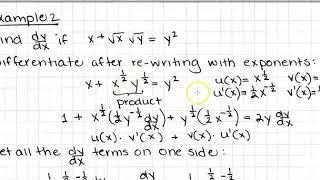 Example 2
Find dy/dx if x + √x √y = y²
Differentiate after re-writing with exponents:
x + x^½ y^½ = y² u(x) = x^½ v(x) =
product u'(x) = ½x^-½ v'(x) =
1 + x^½(½y^-½ dy/dx) + y^½(½x^-½) = 2y dy/dx
u(x) · v'(x) + v(x) · u'(x)
Get all the dy/dx terms on one side: